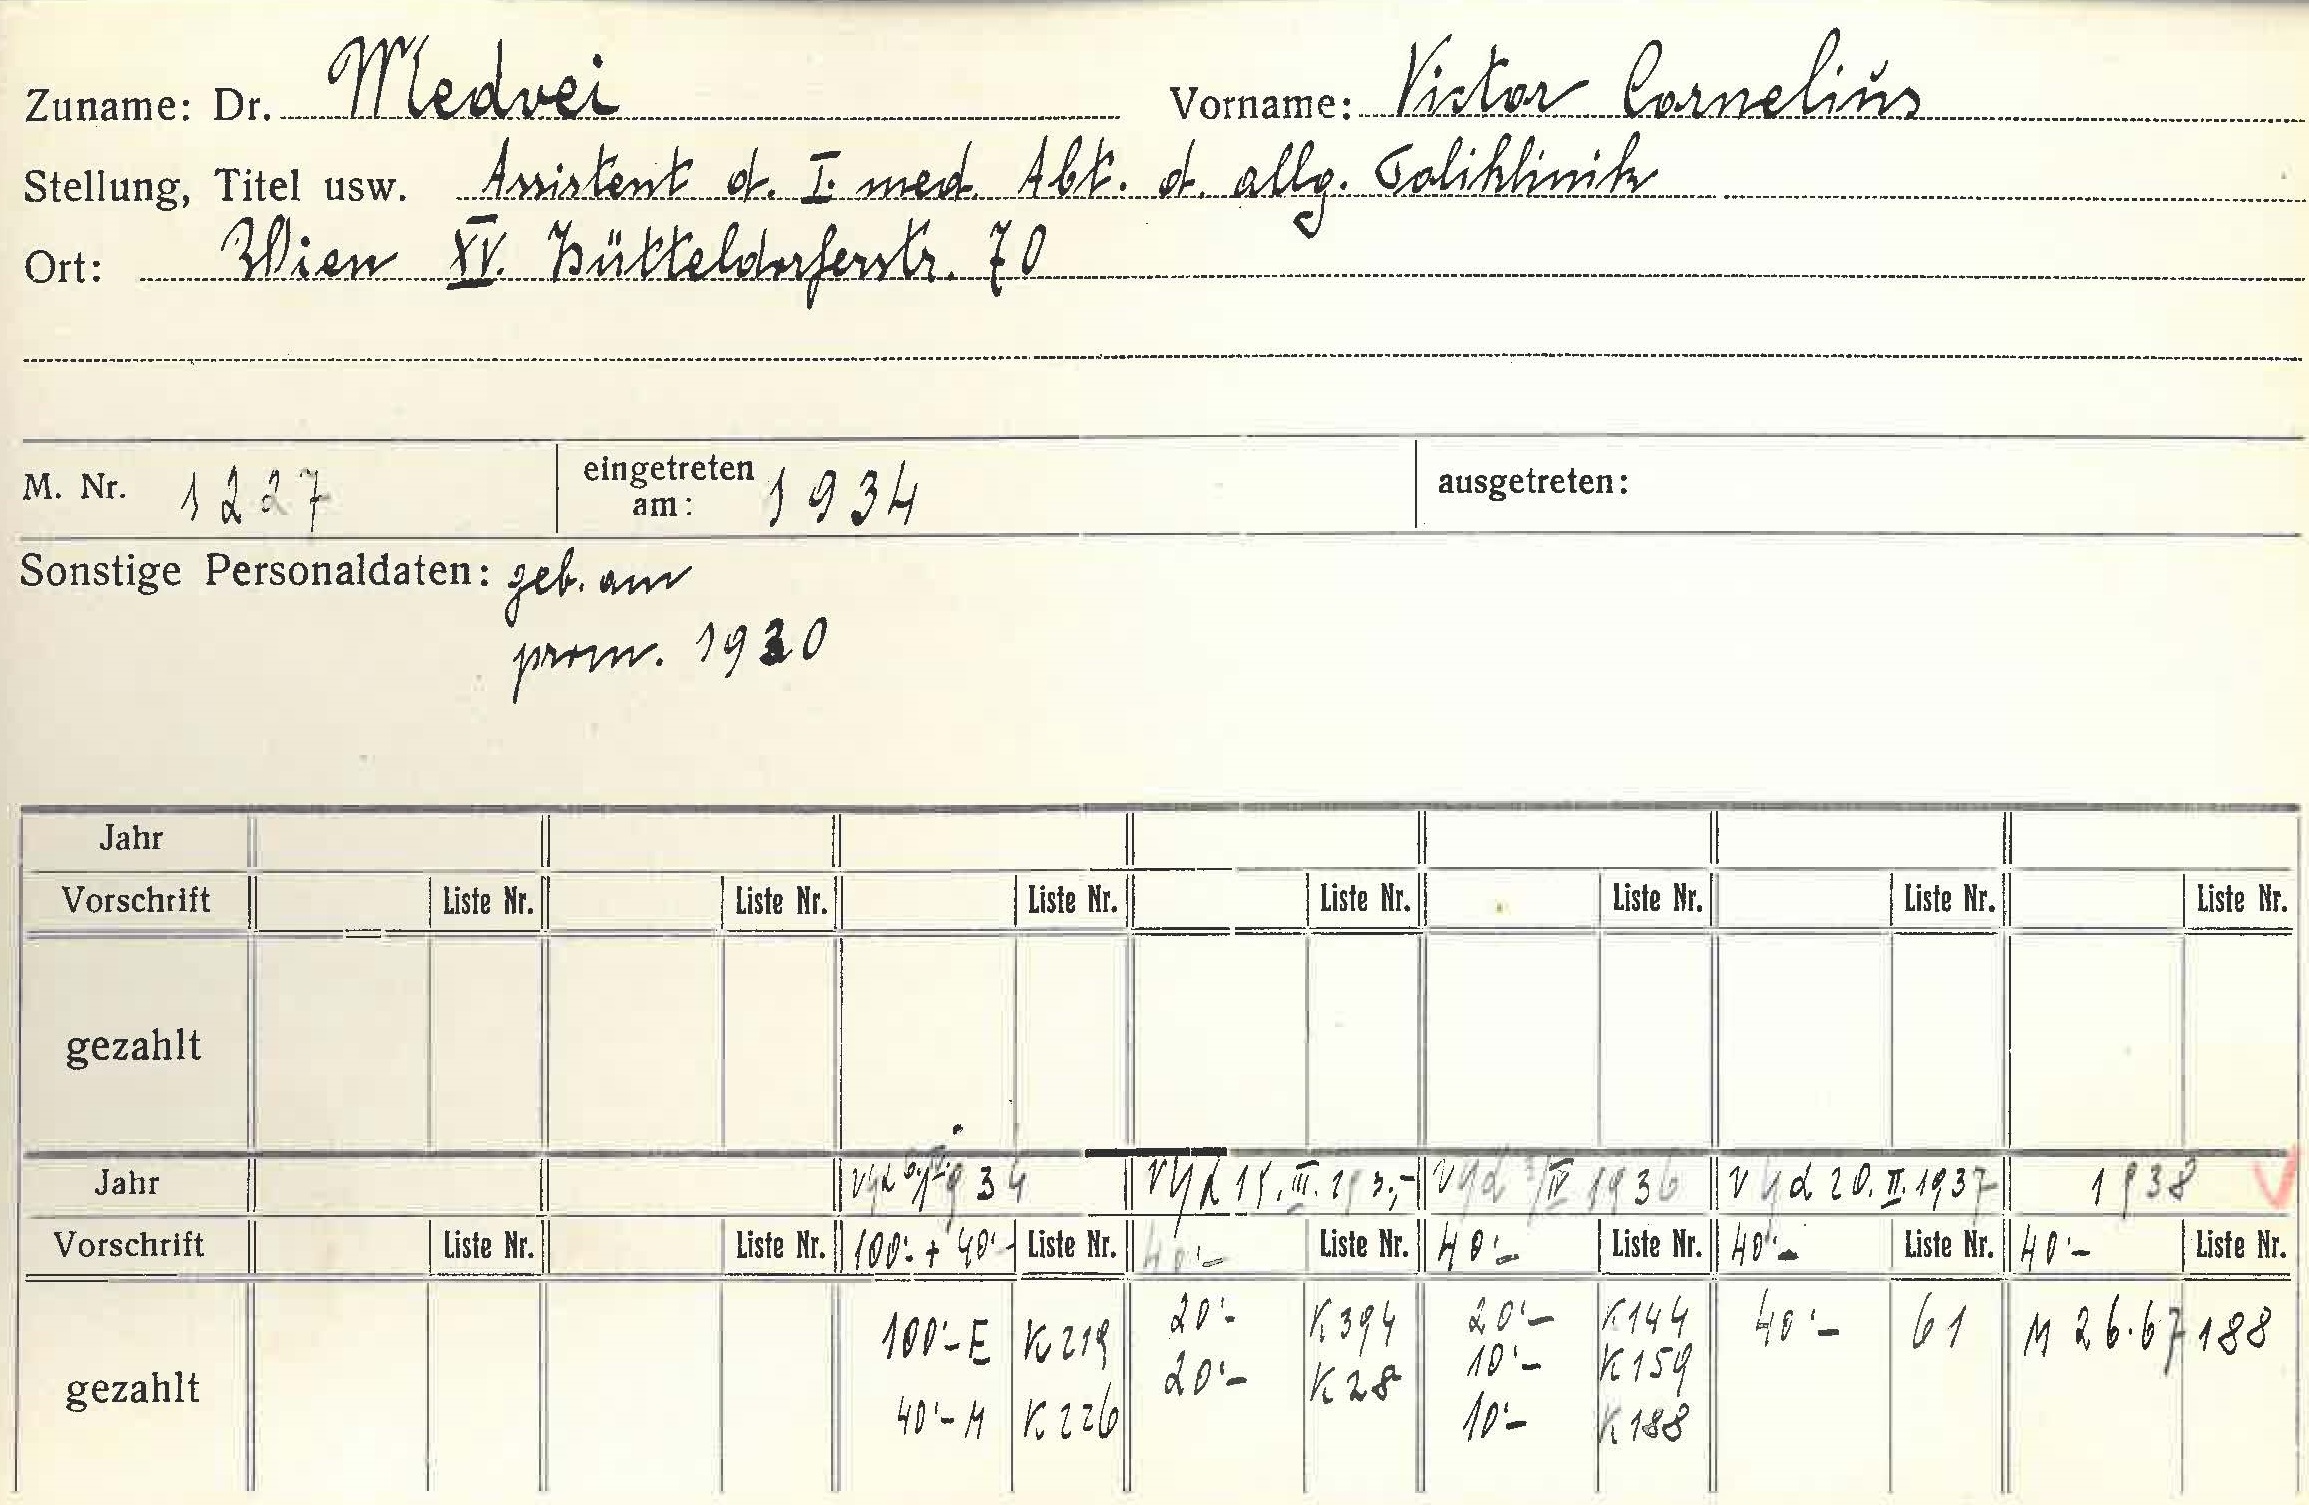 Zuname: Dr. Medvei Vorname: Victor Cornelius
Stellung, Titel usw. Assistent d. I. med. Abt. d. allg. Poliklinik
Ort: Wien XV. Hütteldorferstr. 70
M. Nr. 1227 eingetreten am: 1934 ausgetreten:
Sonstige Personaldaten: geb. am
prom. 1930
Jahr
Vorschrift Liste Nr. Liste Nr. Liste Nr. Liste Nr. Liste Nr. Liste Nr. Liste Nr.
gezahlt
Jahr 934 15. III. 193 IV 1936 20. II. 1937 1938
Vorschrift Liste Nr. Liste Nr. 100·- + 40·- Liste Nr. 40·- Liste Nr. 40·- Liste Nr. 40·- Liste Nr. 40·- Liste Nr.
gezahlt 100·- E K 219 20·- K 394 20·- K 144 40·- 61 M 26.67 188
20·- K 28 10·- K 159
40·- M K 226 10·- K 188